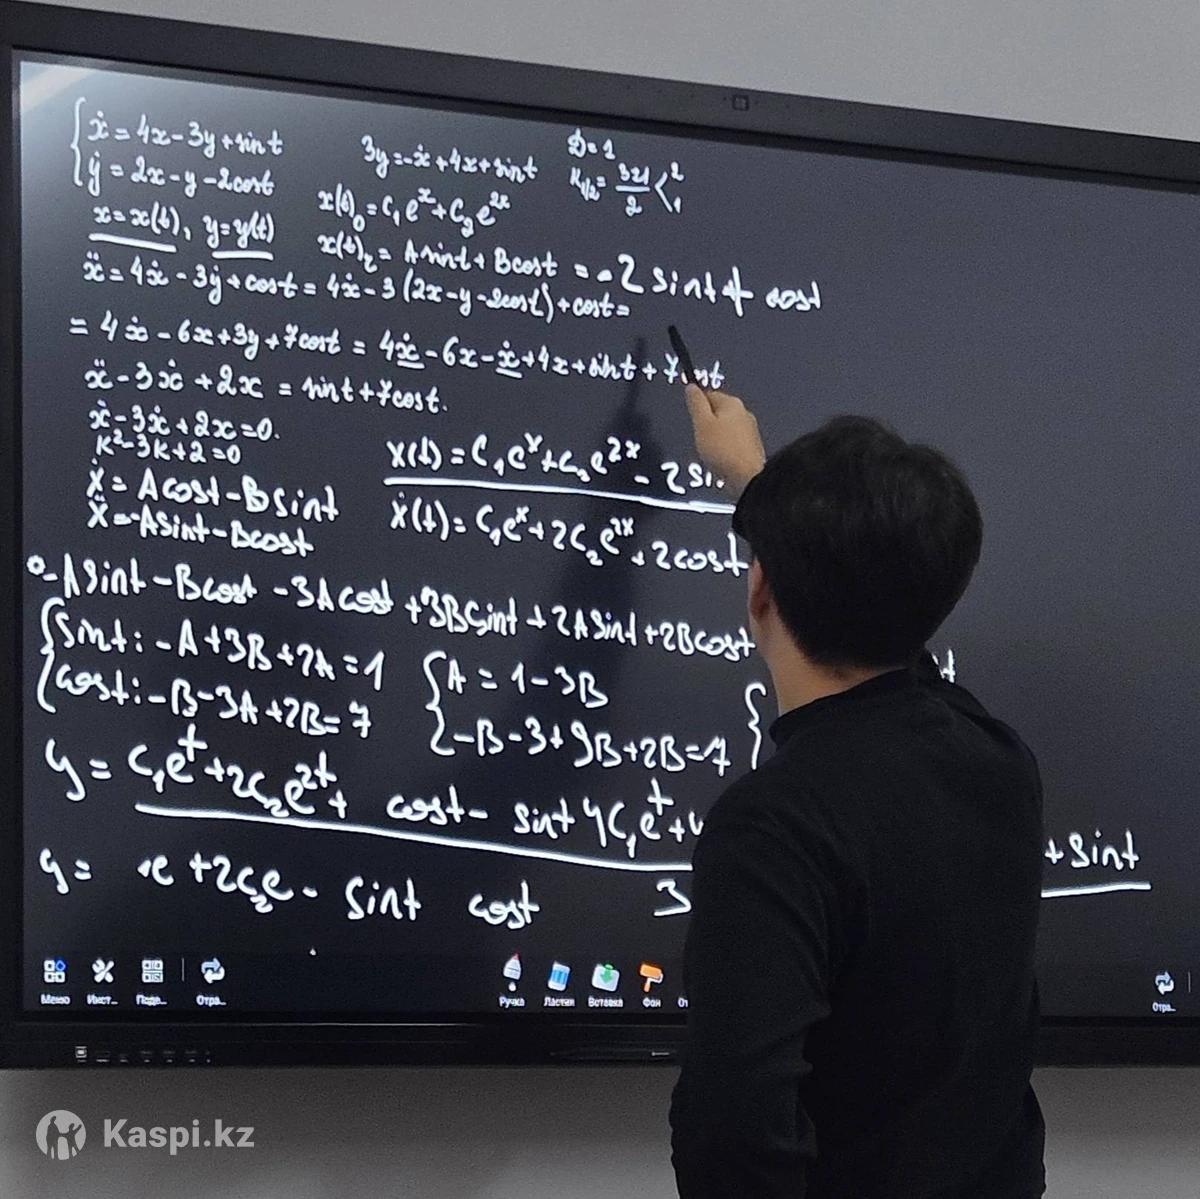 ẋ = 4x - 3y + sint
ẏ = 2x - y - 2cost
x = x(t), y = y(t)
3y = -ẋ + 4x + sint
D = 1
K1/2 = 3±1/2 < 2 1
x(t)₀ = C₁eˣ + C₂e²ˣ
x(t)₂ = Asint + Bcost = -2 sint + cost
ẍ = 4ẋ - 3ẏ + cost = 4ẋ - 3(2x - y - 2cost) + cost =
= 4ẋ - 6x + 3y + 7cost = 4ẋ - 6x - ẋ + 4x + sint + 7cost
ẍ - 3ẋ + 2x = sint + 7cost.
ẍ - 3ẋ + 2x = 0.
K² - 3K + 2 = 0
Ẋ = Acost - Bsint
Ẍ = -Asint - Bcost
X(t) = C₁eˣ + C₂e²ˣ - 2 sin
Ẋ(t) = C₁eˣ + 2C₂e²ˣ + 2cost
-Asint - Bcost - 3Acost + 3Bsint + 2Asint + 2Bcost
sint: -A + 3B + 2A = 1
cost: -B - 3A + 2B = 7
A = 1 - 3B
-B - 3 + 9B + 2B = 7
y = C₁eᵗ + 2C₂e²ᵗ + cost - sint 4C₁eᵗ + + sint
y = e + 2C₂e - sint cost 3
Меню Инст... Поде... Отра... Ручка Ластик Вставка Фон От Отра...
Kaspi.kz